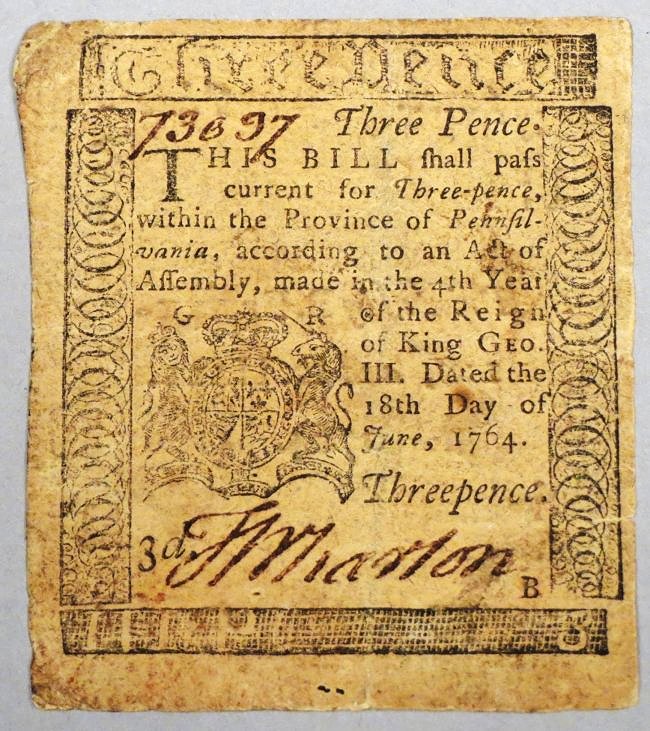 Three Pence
73697 Three Pence.
THIS BILL ſhall paſs
current for Three-pence,
within the Province of Pennſil-
vania, according to an Act of
Aſſembly, made in the 4th Year
G R of the Reign
of King GEO.
III. Dated the
18th Day of
June, 1764.
Threepence.
3d. Wharton
B